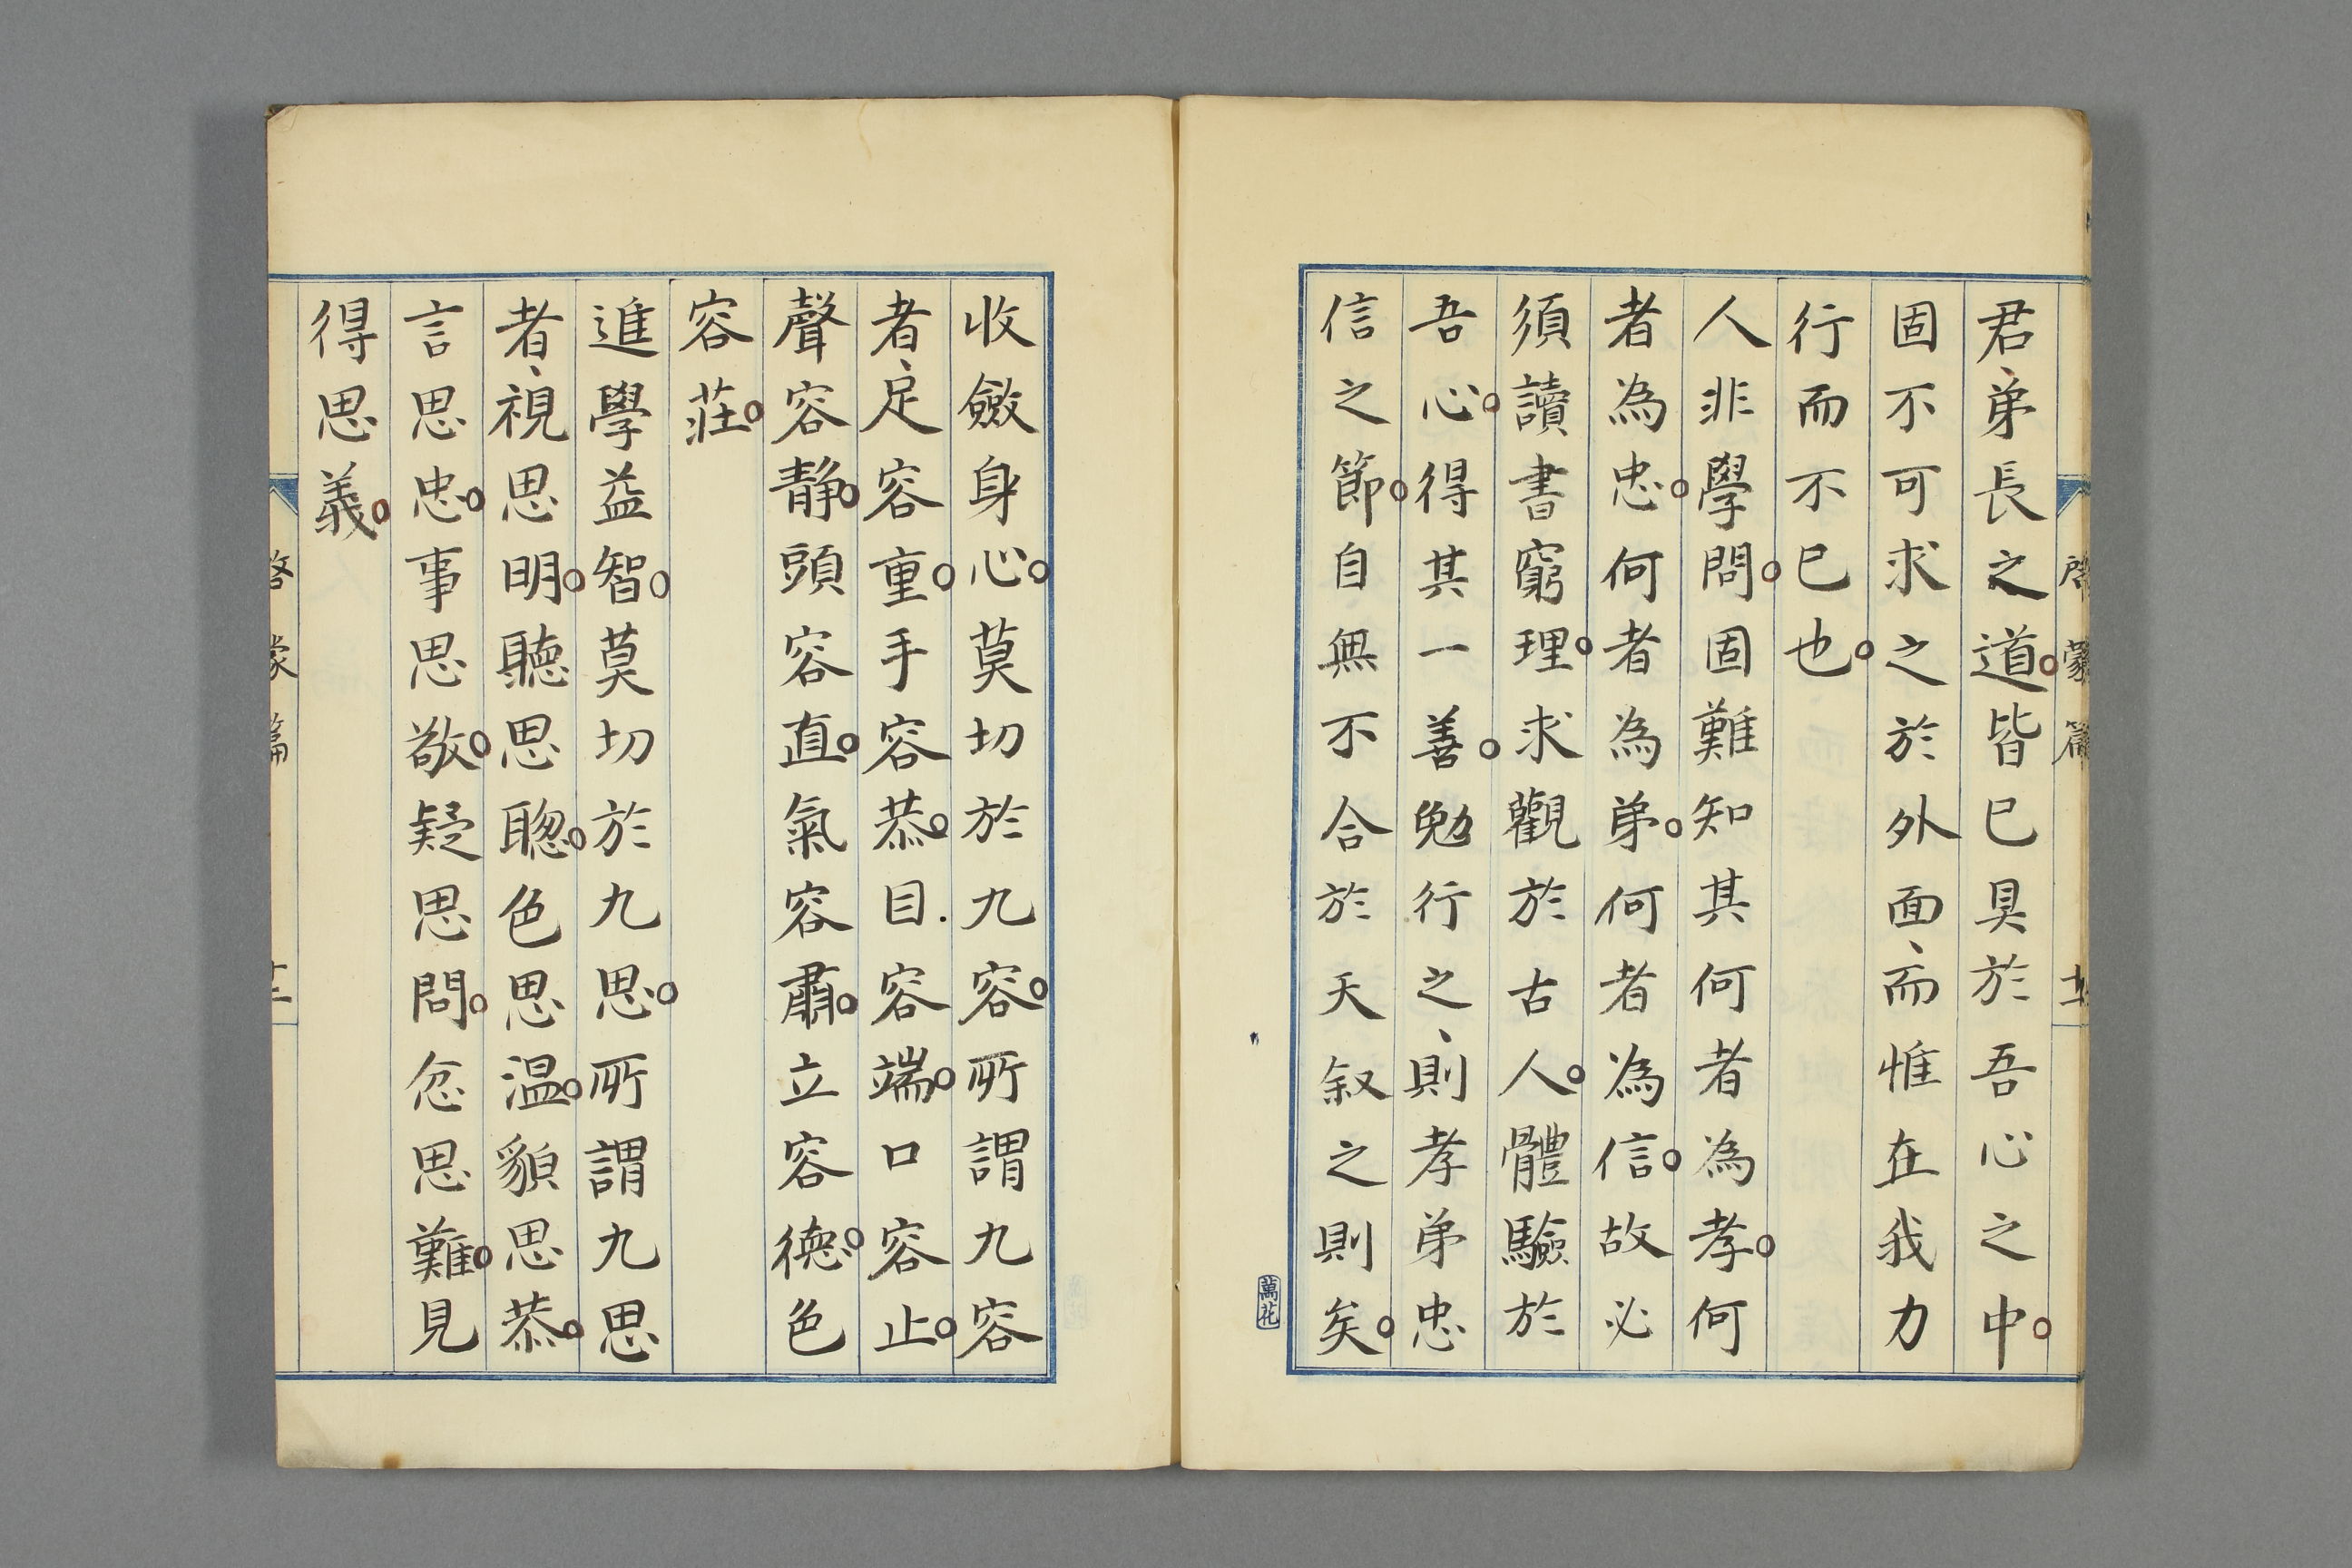 君、弟長之道。皆已具於吾心之中。
固不可求之於外面、而惟在我力
行而不已也。
人非學問。固難知其何者為孝。何
者為忠。何者為弟。何者為信。故必
須讀書窮理。求觀於古人。體驗於
吾心。得其一善。勉行之、則孝弟忠
信之節。自無不合於天叙之則矣。
萬花
收斂身心。莫切於九容。所謂九容
者、足容重。手容恭。目容端。口容止。
聲容静。頭容直。氣容肅。立容德。色
容莊。
進學益智。莫切於九思。所謂九思
者、視思明。聽思聰。色思温。貌思恭。
言思忠。事思敬。疑思問。忿思難。見
得思義。
啓蒙篇